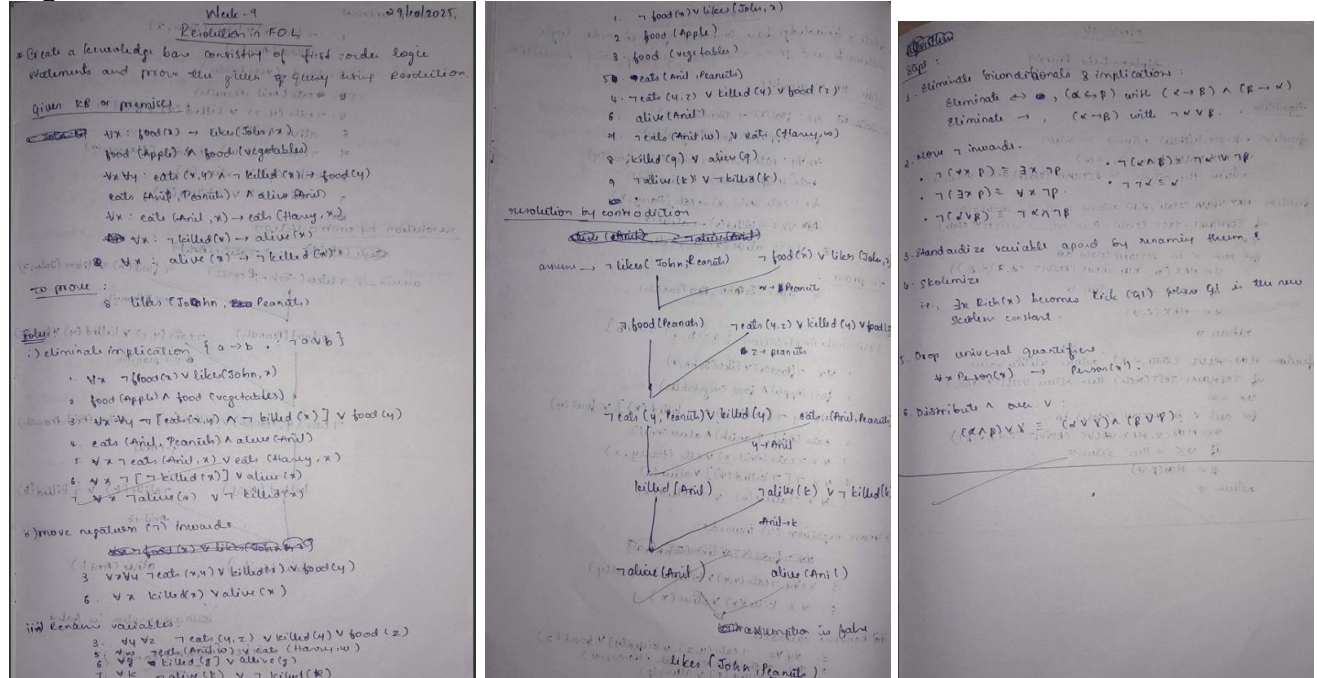 Week-9
29/10/2025
Resolution in FOL
Create a knowledge base consisting of first order logic
statements and prove the given query using Resolution.
Given KB or premises:
∀x: food(x) → likes(John, x)
food(Apple) ∧ food(vegetables)
∀x∀y: eats(x,y) ∧ ¬killed(x) → food(y)
eats(Anil, Peanuts) ∧ alive(Anil)
∀x: eats(Anil, x) → eats(Harry, x)
∀x: ¬killed(x) → alive(x)
∀x: alive(x) → ¬killed(x)
To prove:
8. likes(John, Peanuts)
Soln:
i) eliminate implication [a→b : ¬a∨b]
1. ∀x ¬food(x) ∨ likes(John, x)
2. food(Apple) ∧ food(vegetables)
3. ∀x∀y ¬[eats(x,y) ∧ ¬killed(x)] ∨ food(y)
4. eats(Anil, Peanuts) ∧ alive(Anil)
5. ∀x ¬eats(Anil, x) ∨ eats(Harry, x)
6. ∀x ¬[¬killed(x)] ∨ alive(x)
7. ∀x ¬alive(x) ∨ ¬killed(x)
ii) move negation (¬) inwards
3 ∀x∀y ¬eats(x,y) ∨ killed(x) ∨ food(y)
6. ∀x killed(x) ∨ alive(x)
iii) Rename variables:
3. ∀y ∀z ¬eats(y,z) ∨ killed(y) ∨ food(z)
5. ∀w ¬eats(Anil,w) ∨ eats(Harry,w)
6 ∀g killed(g) ∨ alive(g)
7. ∀k ¬alive(k) ∨ ¬killed(k)
1. ¬food(x) ∨ likes(John, x)
2 food(Apple)
3 food(vegetables)
5 eats(Anil, Peanuts)
4. ¬eats(y,z) ∨ killed(y) ∨ food(z)
6 alive(Anil)
7 ¬eats(Anil,w) ∨ eats(Harry,w)
8 killed(g) ∨ alive(g)
9 ¬alive(k) ∨ ¬killed(k)
resolution by contradiction
assume → ¬likes(John, Peanuts) ¬food(x) ∨ likes(John,
x → Peanuts
¬food(Peanuts) ¬eats(y,z) ∨ killed(y) ∨ food(z
z → peanuts
¬eats(y, Peanuts) ∨ killed(y) eats(Anil, Peanuts
y → Anil
killed(Anil) ¬alive(k) ∨ ¬killed(k
Anil → k
¬alive(Anil) alive(Anil)
assumption is false
likes(John, Peanuts)
Steps:
1. Eliminate biconditionals & implications:
Eliminate ↔, (α↔β) with (α→β) ∧ (β→α)
Eliminate →, (α→β) with ¬α∨β.
2. Move ¬ inwards.
• ¬(∀x P) ≡ ∃x ¬P • ¬(α∧β) ≡ ¬α∨¬β
• ¬(∃x P) ≡ ∀x ¬P. • ¬¬α ≡ α
• ¬(α∨β) ≡ ¬α∧¬β
3. Standardize variable apart by renaming them
4. Skolemize
i.e., ∃x Rich(x) becomes Rich(G1) where G1 is the new
skolem constant.
5. Drop universal quantifiers
∀x Person(x) → Person(x).
6. Distribute ∧ over ∨:
(α∧β)∨γ ≡ (α∨γ)∧(β∨γ)